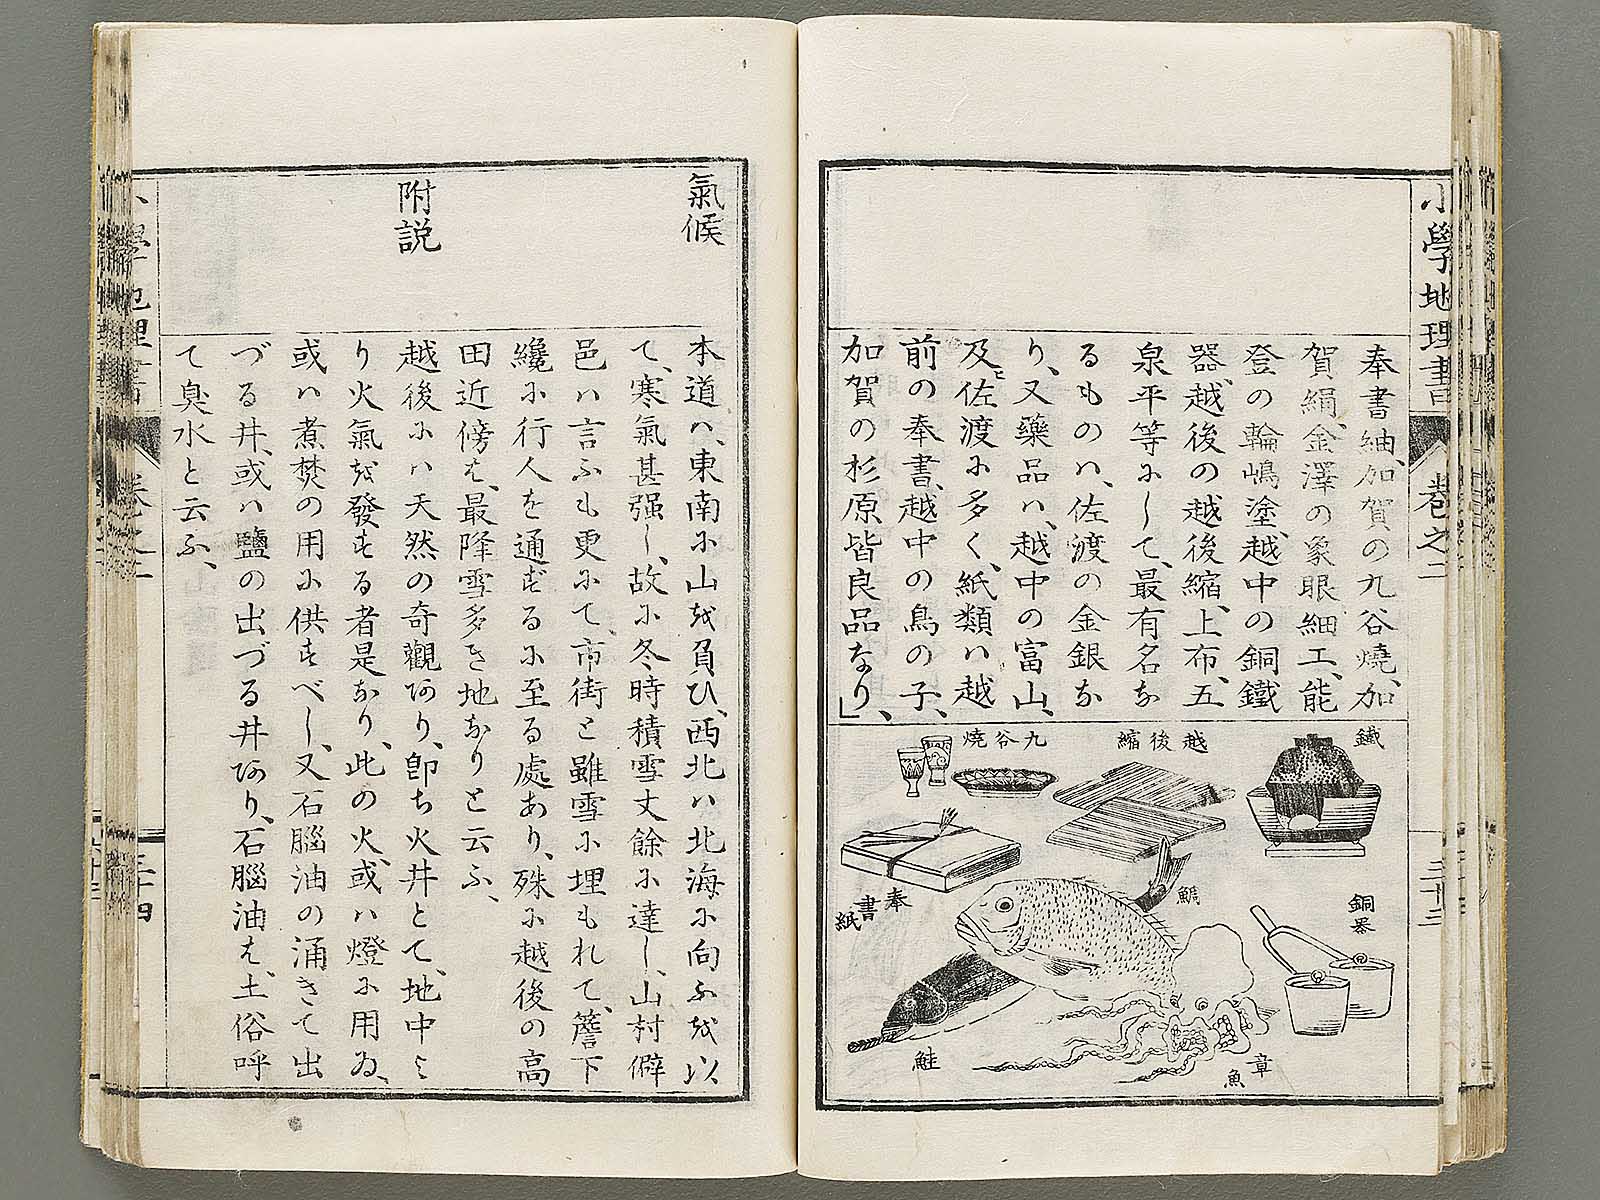 小學地理書
卷之二
三十三
奉書紬、加賀の九谷燒、加
賀絹、金澤の象眼細工、能
登の輪嶋塗、越中の銅鐵
器、越後の越後縮、上布、五
泉平等にして、最有名な
るものハ、佐渡の金銀な
り、又藥品ハ、越中の富山、
及ヒ佐渡に多く、紙類ハ越
前の奉書、越中の鳥の子、
加賀の杉原皆良品なり、」
鐵
越後縮
九谷燒
奉書紙
鯛
銅器
鮭
章魚
氣候
本道ハ、東南に山を負ひ、西北ハ北海に向ふを以
て、寒氣甚强し、故に冬時積雪丈餘に達し、山村僻
邑ハ言ふも更にて、市街と雖雪に埋もれて、簷下
纔に行人を通ずるに至る處あり、殊に越後の高
田近傍は、最降雪多き地なりと云ふ、
附説
越後にハ天然の奇觀あり、卽ち火井とて、地中よ
り火氣を發する者是なり、此の火、或ハ燈に用ゐ、
或ハ煮焚の用に供すべし、又石腦油の涌きて出
づる井、或ハ鹽の出づる井あり、石腦油は、土俗呼
て臭水と云ふ、
小學地理書
卷之二
三十四